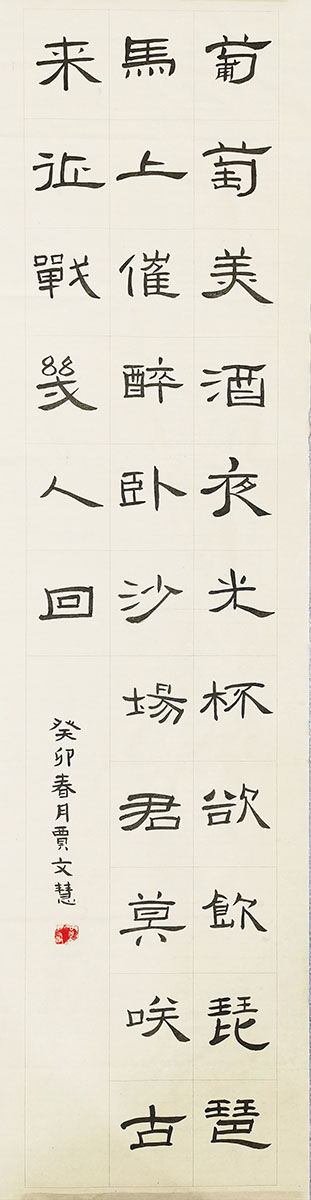 葡萄美酒夜光杯欲飲琵琶
馬上催醉卧沙場君莫咲古
来征戰幾人回
癸卯春月賈文慧